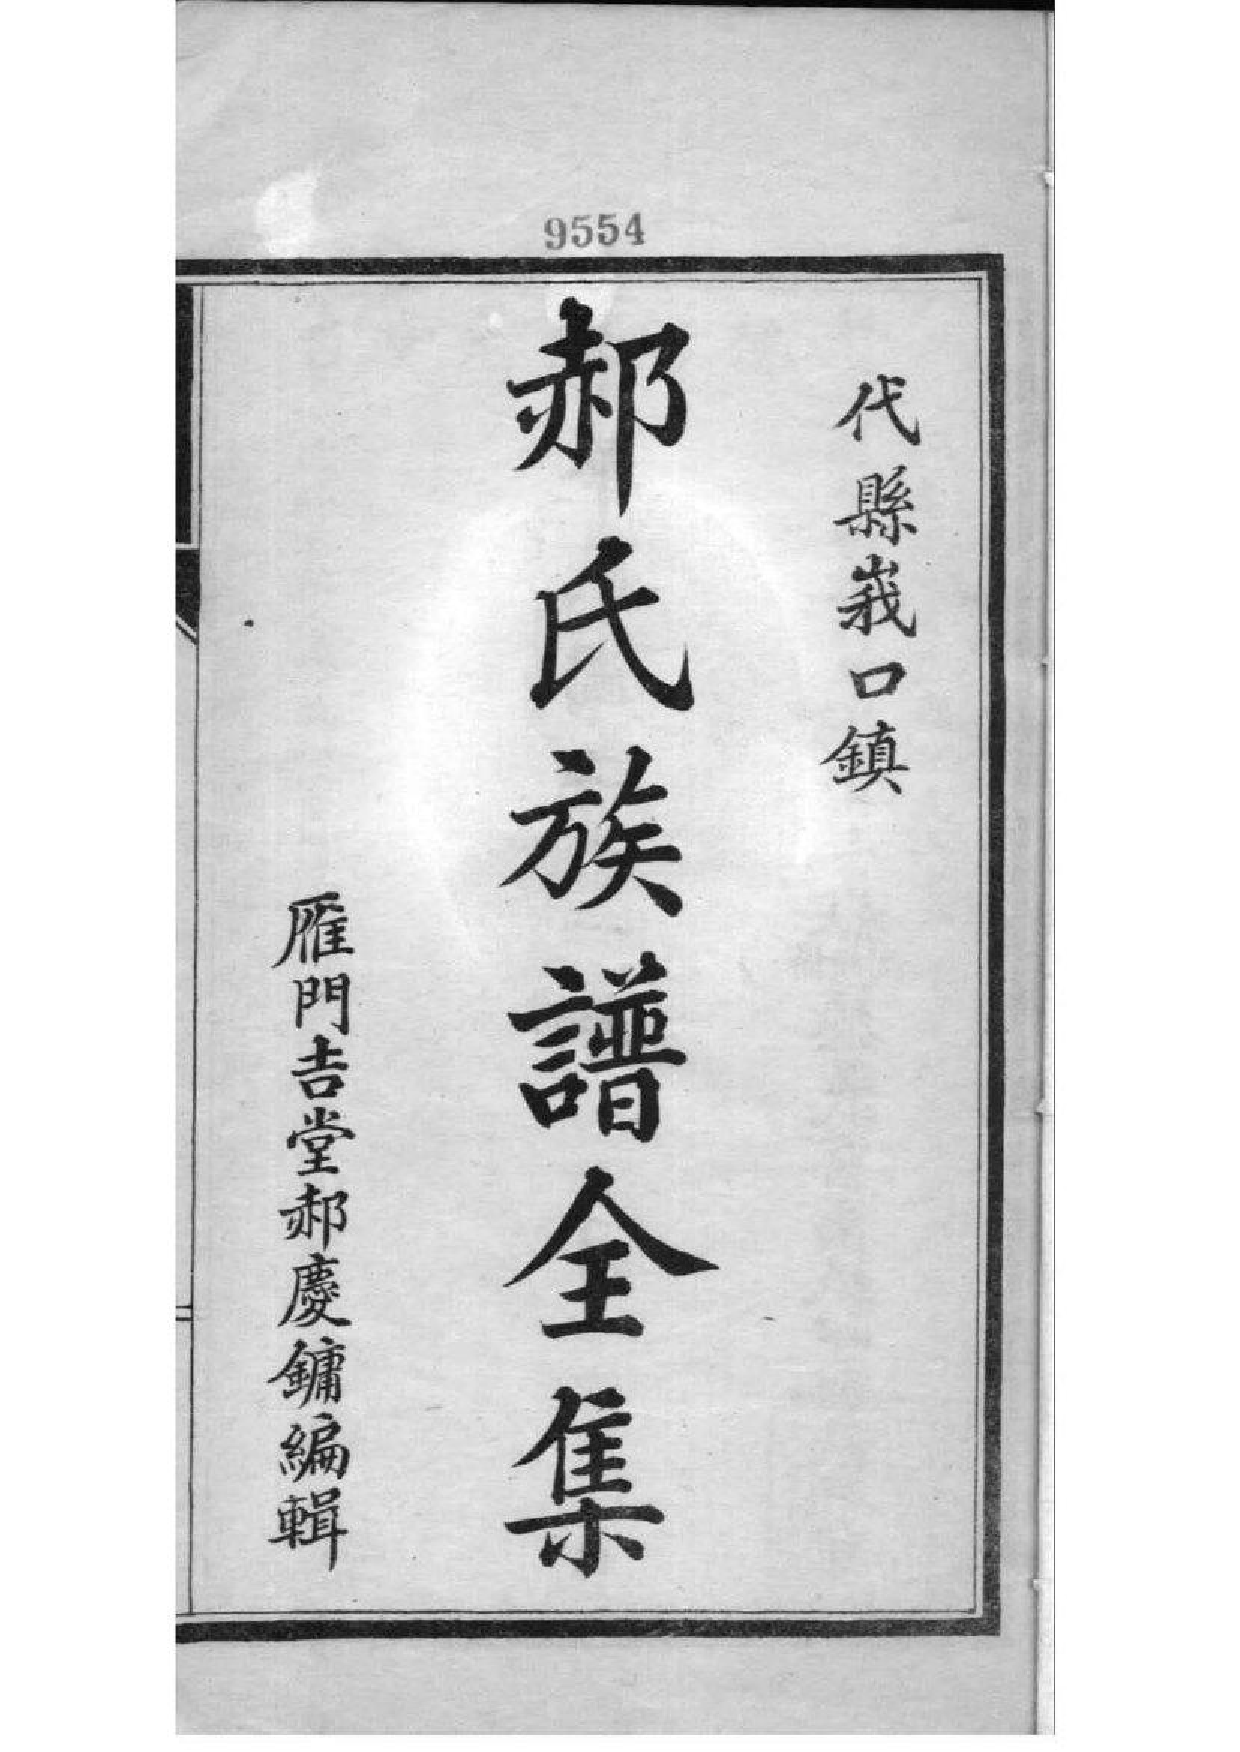 9554
代縣峩口鎮
郝氏族譜全集
雁門吉堂郝慶鏞編輯